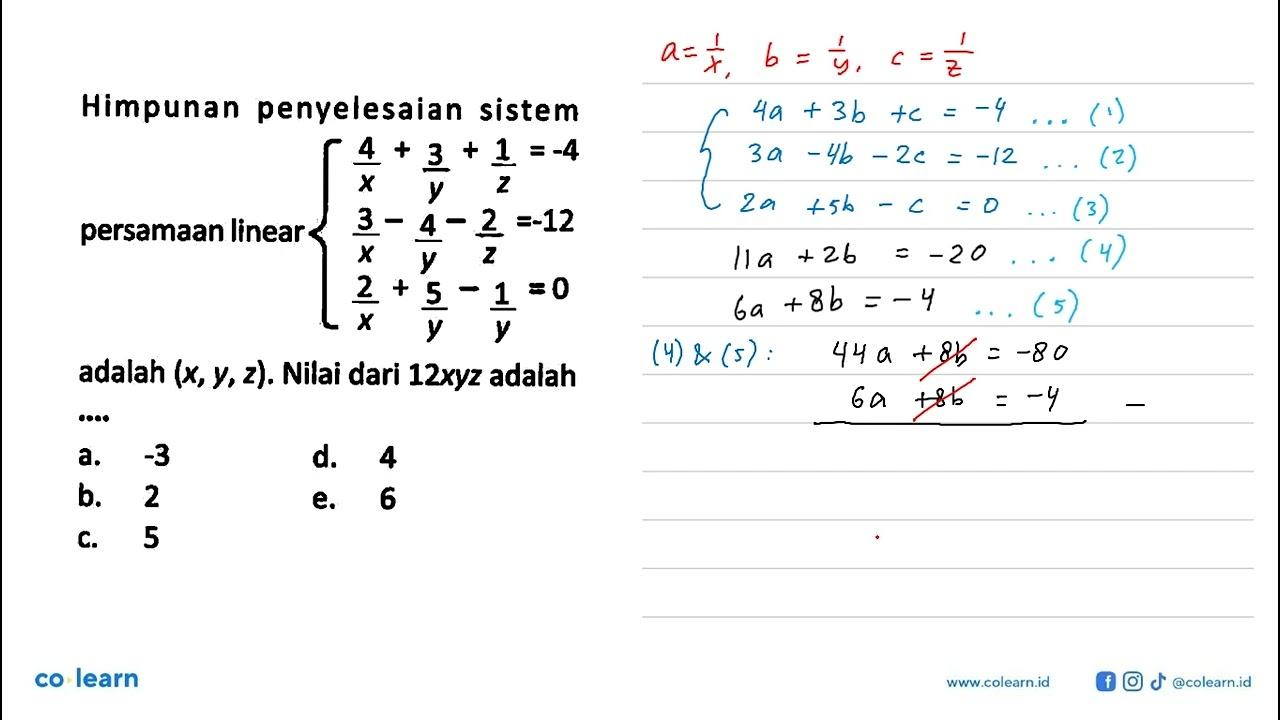 Himpunan penyelesaian sistem
persamaan linear
4/x + 3/y + 1/z = -4
3/x - 4/y - 2/z = -12
2/x + 5/y - 1/y = 0
adalah (x, y, z). Nilai dari 12xyz adalah
....
a. -3
b. 2
c. 5
d. 4
e. 6
a = 1/x, b = 1/y, c = 1/z
4a + 3b + c = -4 ... (1)
3a - 4b - 2c = -12 ... (2)
2a + 5b - c = 0 ... (3)
11a + 2b = -20 ... (4)
6a + 8b = -4 ... (5)
(4) & (5) : 44a + 8b = -80
6a + 8b = -4 —
co learn
www.colearn.id
@colearn.id